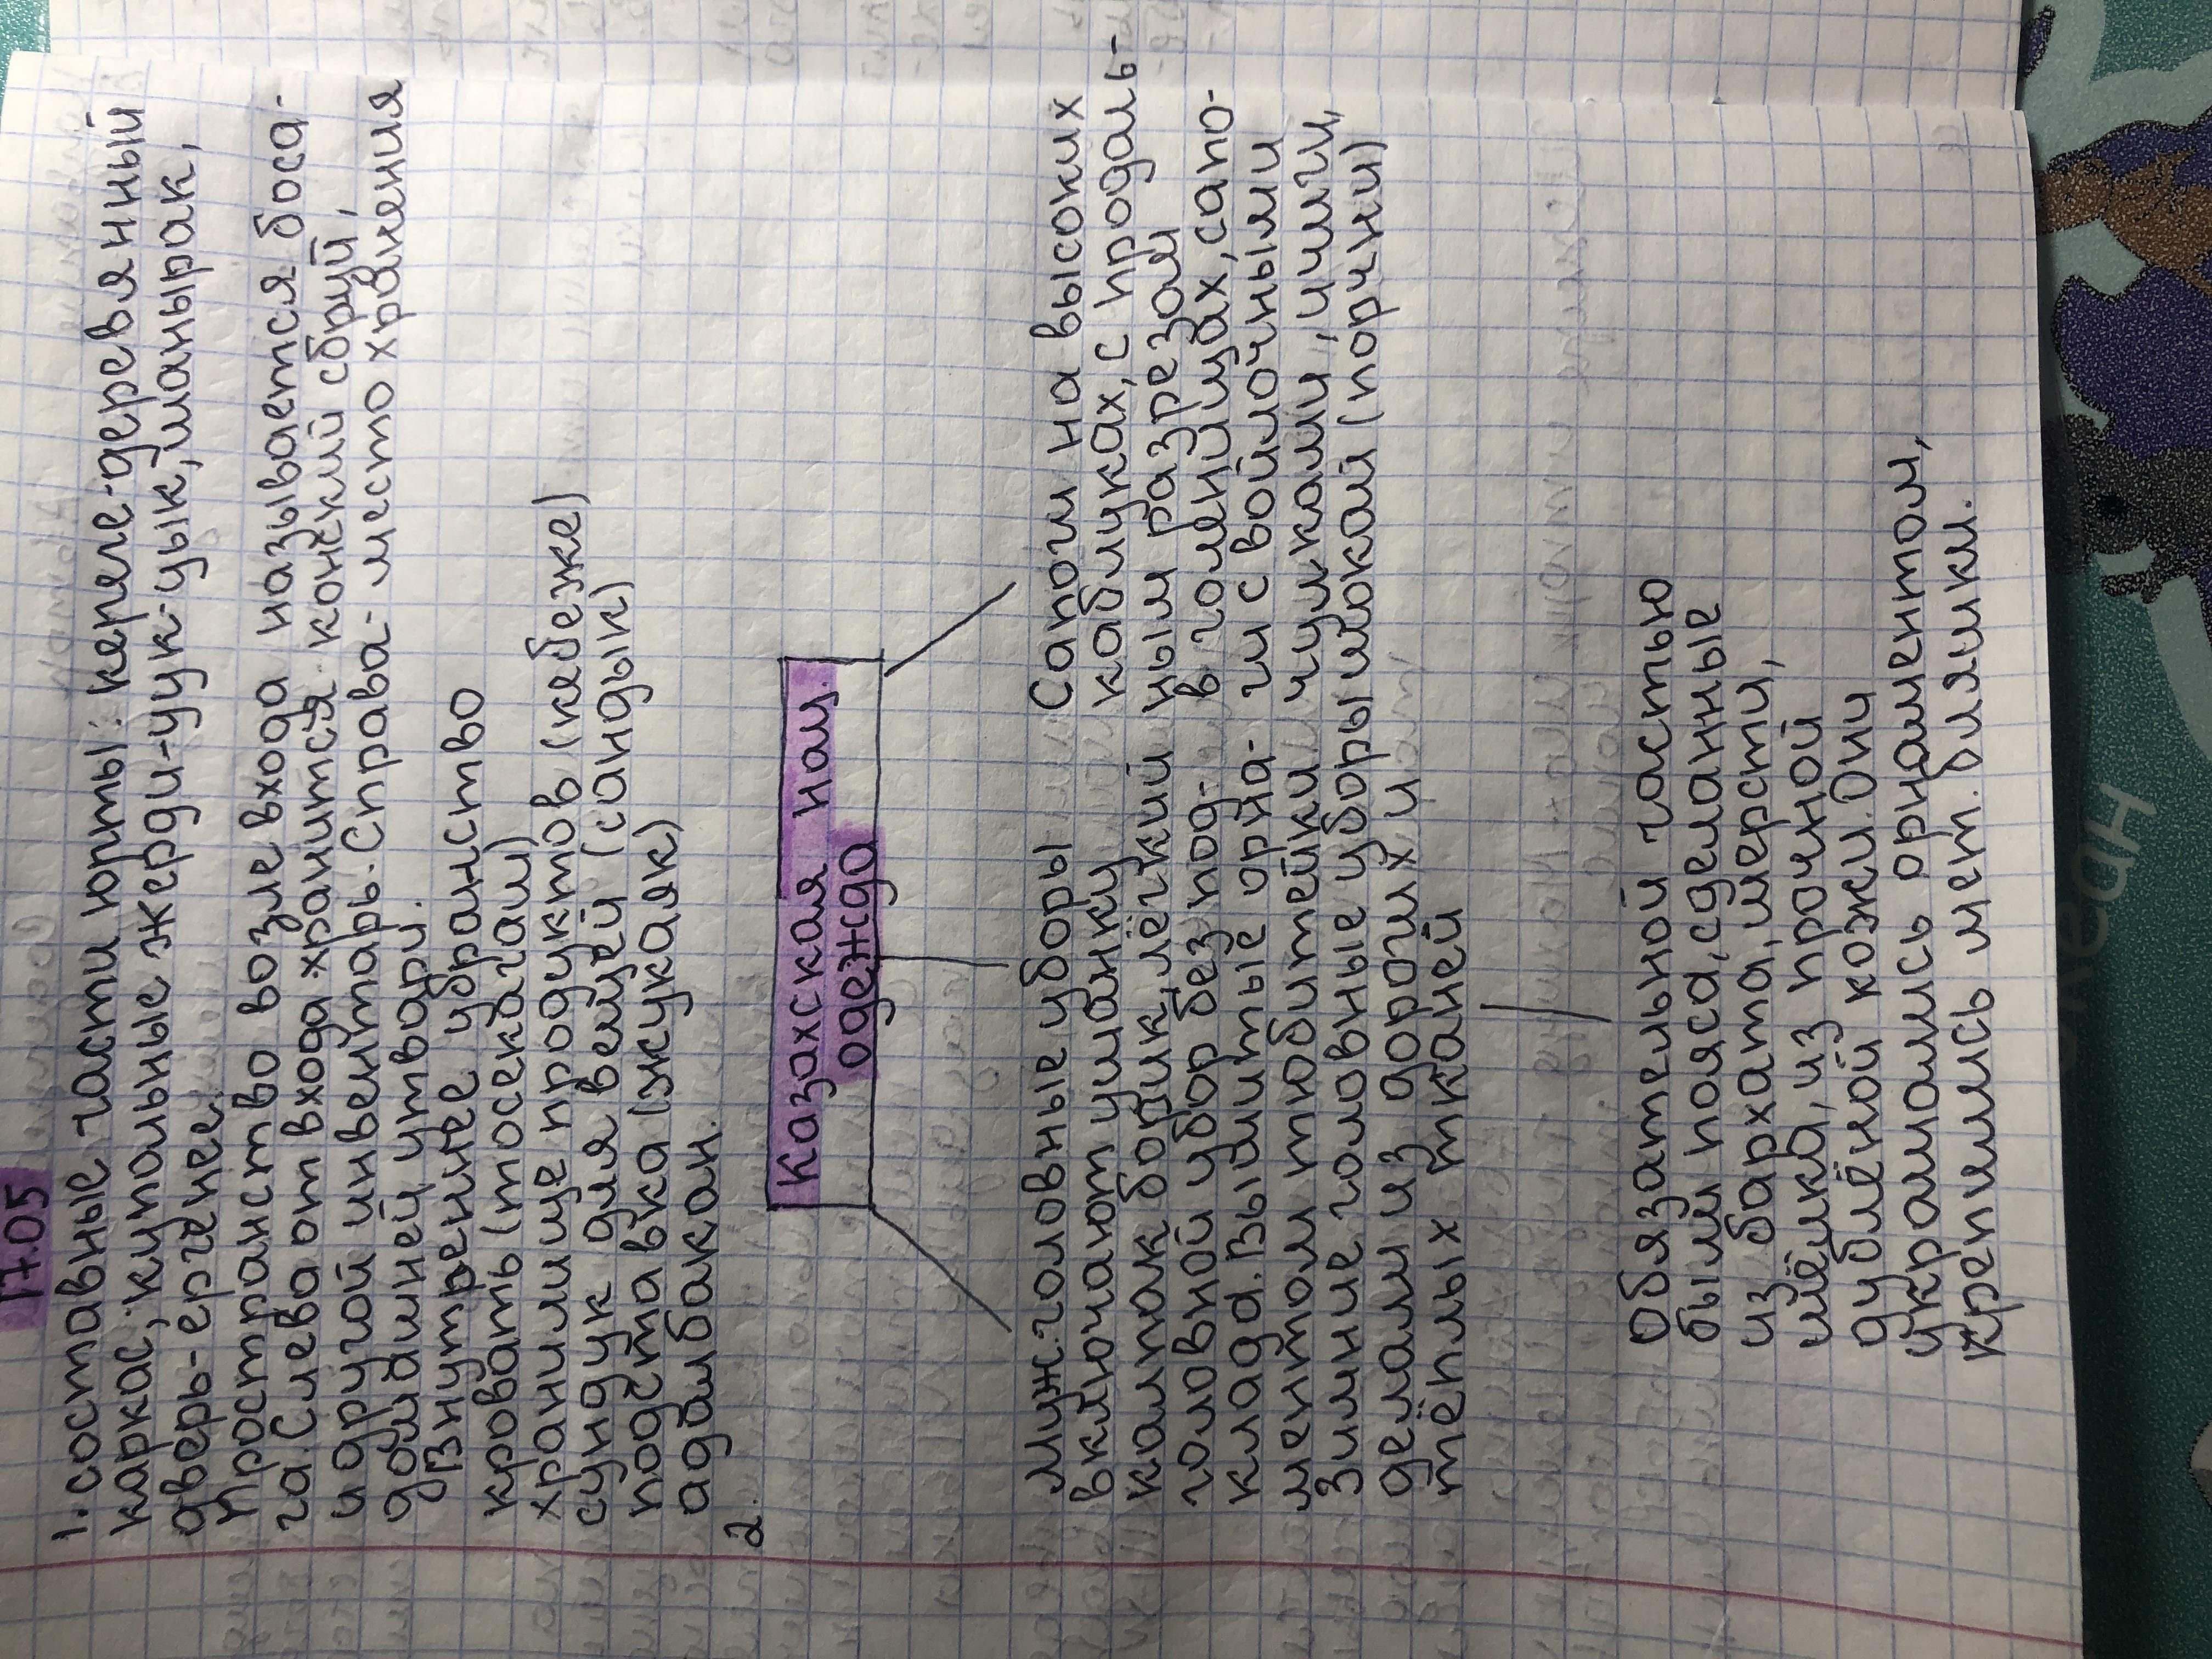 17.05
1. составные части юрты: кереге-деревянный
каркас, купольные жерди-уук-уык, шанырак,
дверь-ергенее.
Пространство возле входа называется боса-
га. Слева от входа хранится конский сбруй,
и другой инвентарь. Справа- место хранения
домашней утвари.
Внутренне убранство
кровать (тосекагаш)
хранилище продуктов (кебеже)
сундук для вещей (сандык)
подставка (жукаяк)
адалбакан.
2.
Казахская нац.
одежда
Муж. головные уборы
включают ушанку
калпак борик, лёгкий
головной убор без под-
клада. Вышитые орна-
ментом тюбитейки
Зимние головные уборы
делали из дорогих и
тёплых тканей
Сапоги на высоких
каблуках, с продаль-
ным разрезом
в голенищах, сапо-
ги с войлочными
чулками, ичиги,
шокай (порчни)
Обязательной частью
были пояса, сделанные
из бархата, шерсти,
шёлка, из прочной
дублёной кожи. Они
украшались орнаментом,
крепились мет. бляшки.